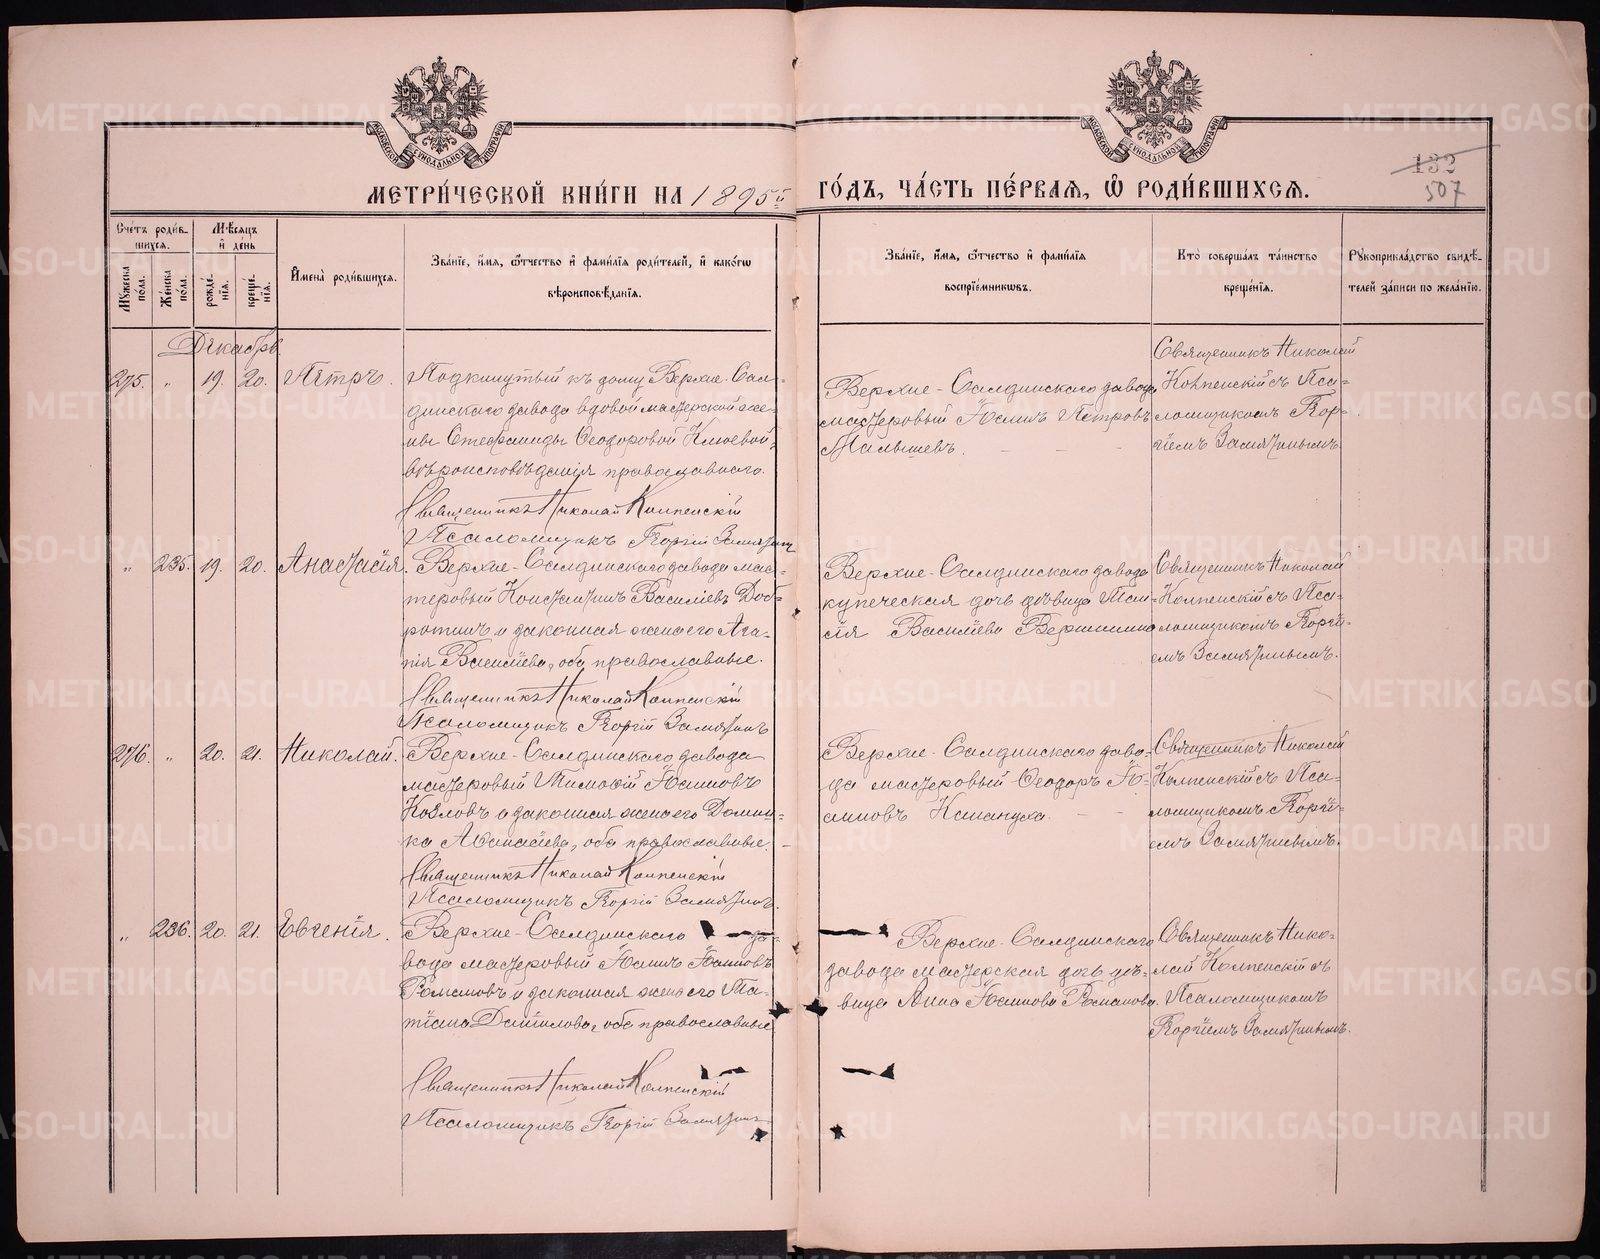 МОСКОВСКОЙ СѴНОДАЛЬНОЙ ТИПОГРАФІИ
МОСКОВСКОЙ СѴНОДАЛЬНОЙ ТИПОГРАФІИ
132
507
МЕТРИ́ЧЕСКОЙ КНИ́ГИ НА 1895й ГО́ДЪ, ЧА́СТЬ ПЕ́РВАЯ, Ѡ РОДИ́ВШИХСЯ.
Сче́тъ роди́в-
шихся.
Мꙋ́жеска по́ла.
Же́нска по́ла.
Мѣ́сяцъ и҆ де́нь
рожде́нія.
креще́нія.
И҆мена̀ роди́вшихся.
Зва́нїе, и҆́мя, ѻ҆́тчество и҆ фами́лїя роди́телей, и҆ како́гѡ
вѣроисповѣ́данїя.
Зва́нїе, и҆́мя, ѻ҆́тчество и҆ фами́лїя
воспрїе́мникѡвъ.
Кто̀ соверша́лъ та́инство
креще́нїя.
Рꙋкоприкла́дство свидѣ́-
телей за́писи по жела́нїю.
Декабрь
275. " 19. 20. Петръ.
Подкинутый къ дому Верхне-Сал-
динскаго завода вдовой мастерской же-
ны Стефаниды Ѳеодоровой Клюевой,
вѣроисповѣданія православнаго.
Священникъ Николай Колпенскій
Псаломщикъ Георгій Замятин
Верхне-Салдинскаго завода
мастеровый Іоаннъ Петровъ
Малышевъ.
Священникъ Николай
Колпенскій съ Пса-
ломщикомъ Геор-
гіемъ Замятнинымъ.
" 235. 19. 20. Анастасія.
Верхне-Салдинскаго завода мас-
теровый Константинъ Василіевъ Доб-
ротинъ и законная жена его Ага-
пія Василіева, оба православные.
Священникъ Николай Колпенскій
Псаломщикъ Георгій Замятинъ
Верхне-Салдинскаго завода
купеческая дочь дѣвица
Василіева
Священникъ Николай
Колпенскій съ Пса-
ломщикомъ Георгі-
емъ Замятнинымъ.
276. " 20. 21. Николай.
Верхне-Салдинскаго завода
мастеровый Тимоѳей Іоанновъ
Козловъ и законная жена его Домни-
ка Аѳанасіева, оба православные.
Священникъ Николай Колпенскій
Псаломщикъ Георгій Замятинъ.
Верхне-Салдинскаго заво-
да мастеровый Ѳеодоръ Іо-
анновъ
Священникъ Николай
Колпенскій съ Пса-
ломщикомъ Георгі-
емъ Замятнинымъ.
" 236. 20. 21. Евгенія.
Верхне-Салдинскаго за-
вода мастеровый Іоаннъ Іоанновъ
Романовъ и законная жена его Та-
тіана Даніилова, оба православные
Священникъ Николай Колпенскій
Псаломщикъ Георгій Замятин
Верхне-Салдинскаго
завода мастерская дочь дѣ-
вица Анна Іоаннова Романова.
Священникъ Нико-
лай Колпенскій съ
Псаломщикомъ
Георгіемъ Замятнинымъ.
METRIKI.GASO-URAL.RU